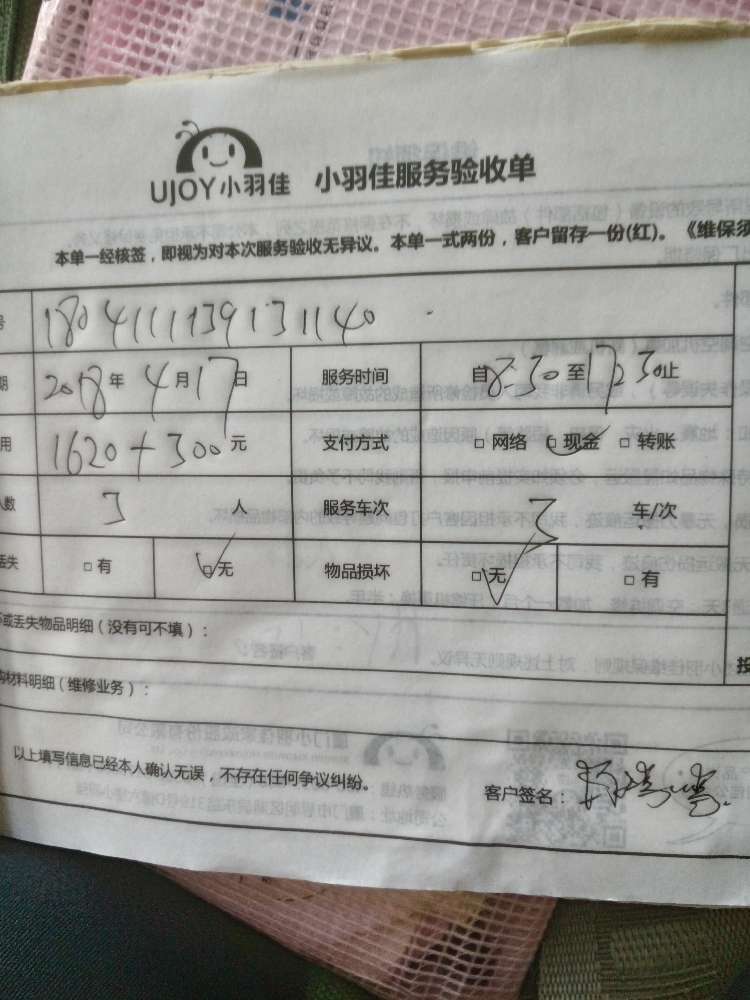 UJOY小羽佳 小羽佳服务验收单
本单一经核签，即视为对本次服务验收无异议。本单一式两份，客户留存一份(红)。《维保须
号 180411113913 1140
期 2018年4月17日 服务时间 自8:30至17:30止
用 1620+300元 支付方式 □网络 □现金 □转账
人数 3人 服务车次 3 车/次
丢失 □有 □无 物品损坏 □无 □有
坏或丢失物品明细（没有可不填）：
购材料明细（维修业务）：
投
以上填写信息已经本人确认无误，不存在任何争议纠纷。
客户签名：